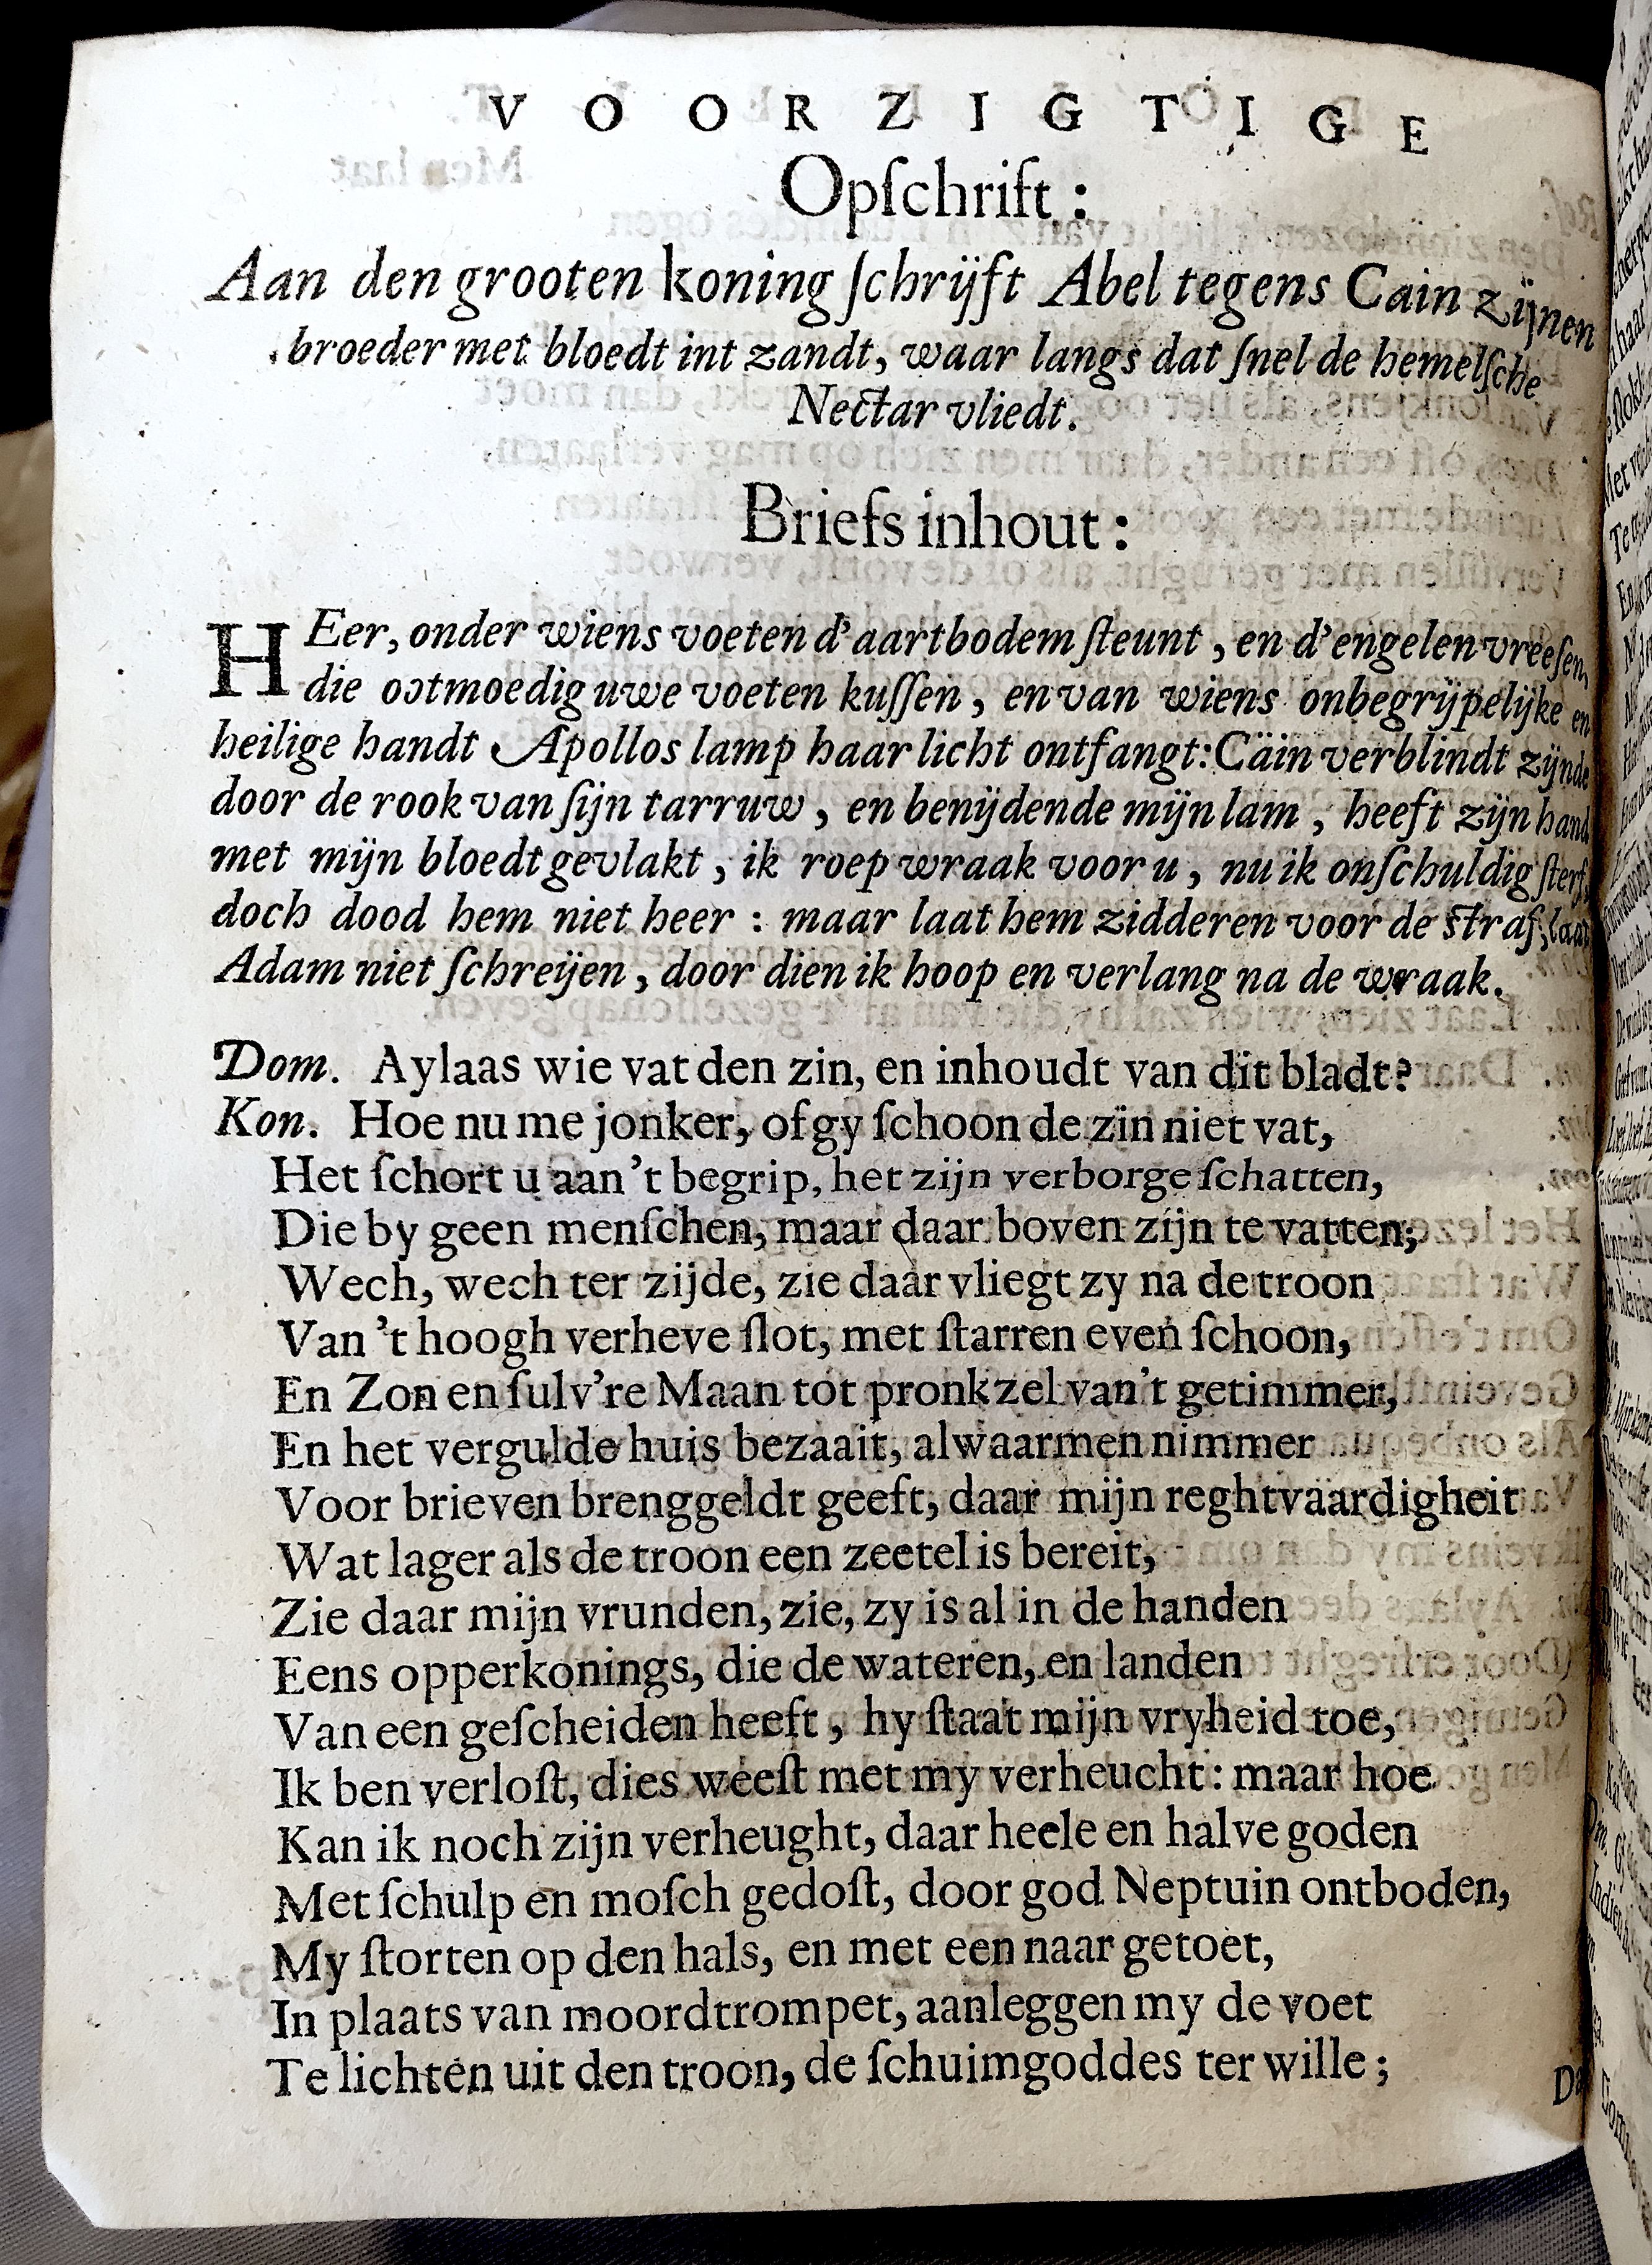 VOORZIGTIGE
Opſchrift:
Aan den grooten koning ſchrijft Abel tegens Cain zijnen
broeder met bloedt int zandt, waar langs dat ſnel de hemelſche
Nectar vliedt.
Briefs inhout:
HEer, onder wiens voeten d'aartbodem ſteunt, en d'engelen vreeſen,
die ootmoedig uwe voeten kuſſen, en van wiens onbegrijpelijke en
heilige handt Apollos lamp haar licht ontfangt: Cain verblindt zijnde
door de rook van ſijn tarruw, en benijdende mijn lam, heeft zijn hand
met mijn bloedt gevlakt, ik roep wraak voor u, nu ik onſchuldig ſterf,
doch dood hem niet heer: maar laat hem zidderen voor de ſtraf, laat
Adam niet ſchreijen, door dien ik hoop en verlang na de wraak.
Dom. Aylaas wie vat den zin, en inhoudt van dit bladt?
Kon. Hoe nu me jonker, of gy ſchoon de zin niet vat,
Het ſchort u aan 't begrip, het zijn verborge ſchatten,
Die by geen menſchen, maar daar boven zijn te vatten;
Wech, wech ter zijde, zie daar vliegt zy na de troon
Van 't hoogh verheve ſlot, met ſtarren even ſchoon,
En Zon en ſulv're Maan tot pronkzel van 't getimmer,
En het vergulde huis bezaait, alwaarmen nimmer
Voor brieven brenggeldt geeft, daar mijn reghtvaardigheit
Wat lager als de troon een zeetel is bereit,
Zie daar mijn vrunden, zie, zy is al in de handen
Eens opperkonings, die de wateren, en landen
Van een geſcheiden heeft, hy ſtaat mijn vryheid toe,
Ik ben verloſt, dies weeſt met my verheucht: maar hoe
Kan ik noch zijn verheught, daar heele en halve goden
Met ſchulp en moſch gedoſt, door god Neptuin ontboden,
My ſtorten op den hals, en met een naar getoet,
In plaats van moordtrompet, aanleggen my de voet
Te lichten uit den troon, de ſchuimgoddes ter wille;